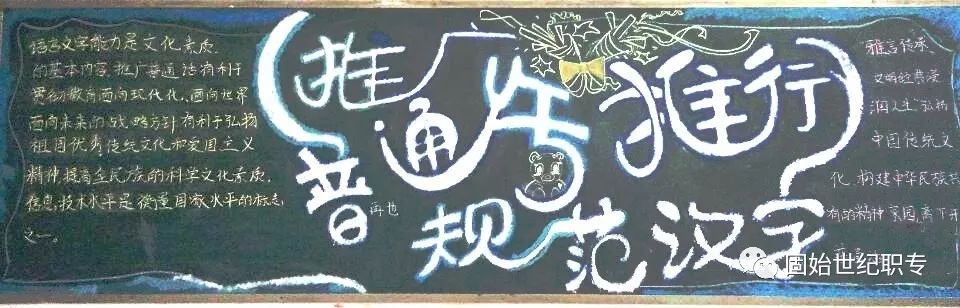 语言文字能力是文化素质
的基本内容,推广普通话有利于
贯彻教育面向现代化,面向世界
面向未来的战略方针有利于弘扬
祖国优秀传统文化和爱国主义
精神,提高全民族的科学文化素质,
信息技术水平是衡量国家水平的标志
之一。
推广
普通话
推行
规范汉字
再也
雅言传承
文明经典浸
润人生,弘扬
中国传统文
化,构建中华民族共
有的精神家园,离不开
固始世纪职专